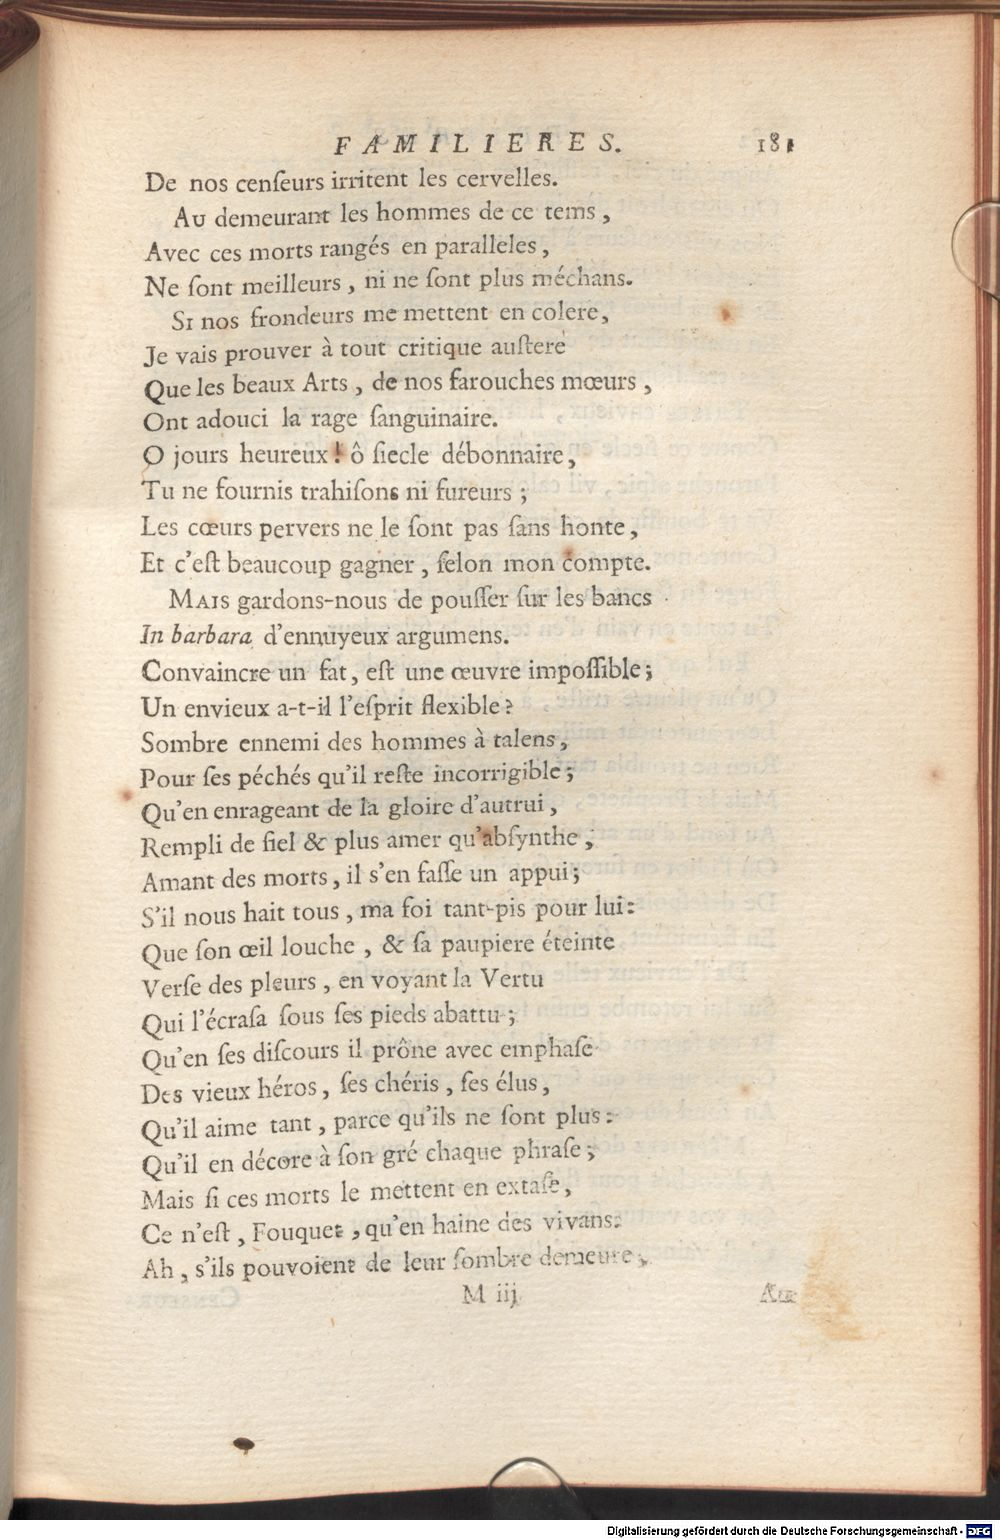 FAMILIERES. 181
De nos cenſeurs irritent les cervelles.
Au demeurant les hommes de ce tems,
Avec ces morts rangés en paralleles,
Ne ſont meilleurs, ni ne ſont plus méchans.
Si nos frondeurs me mettent en colere,
Je vais prouver à tout critique auſtere
Que les beaux Arts, de nos farouches mœurs,
Ont adouci la rage ſanguinaire.
O jours heureux! ô ſiecle débonnaire,
Tu ne fournis trahiſons ni fureurs;
Les cœurs pervers ne le ſont pas ſans honte,
Et c'eſt beaucoup gagner, ſelon mon compte.
Mais gardons-nous de pouſſer ſur les bancs
In barbara d'ennuyeux argumens.
Convaincre un fat, eſt une œuvre impoſſible;
Un envieux a-t-il l'eſprit flexible?
Sombre ennemi des hommes à talens,
Pour ſes péchés qu'il reſte incorrigible;
Qu'en enrageant de la gloire d'autrui,
Rempli de fiel & plus amer qu'abſynthe;
Amant des morts, il s'en faſſe un appui;
S'il nous hait tous, ma foi tant-pis pour lui:
Que ſon œil louche, & ſa paupiere éteinte
Verſe des pleurs, en voyant la Vertu
Qui l'écraſa ſous ſes pieds abattu;
Qu'en ſes diſcours il prône avec emphaſe
Des vieux héros, ſes chéris, ſes élus,
Qu'il aime tant, parce qu'ils ne ſont plus:
Qu'il en décore à ſon gré chaque phraſe;
Mais ſi ces morts le mettent en extaſe,
Ce n'eſt, Fouquet, qu'en haine des vivans.
Ah, s'ils pouvoient de leur ſombre demeure,
M iij
Digitalisierung gefördert durch die Deutsche Forschungsgemeinschaft - DFG